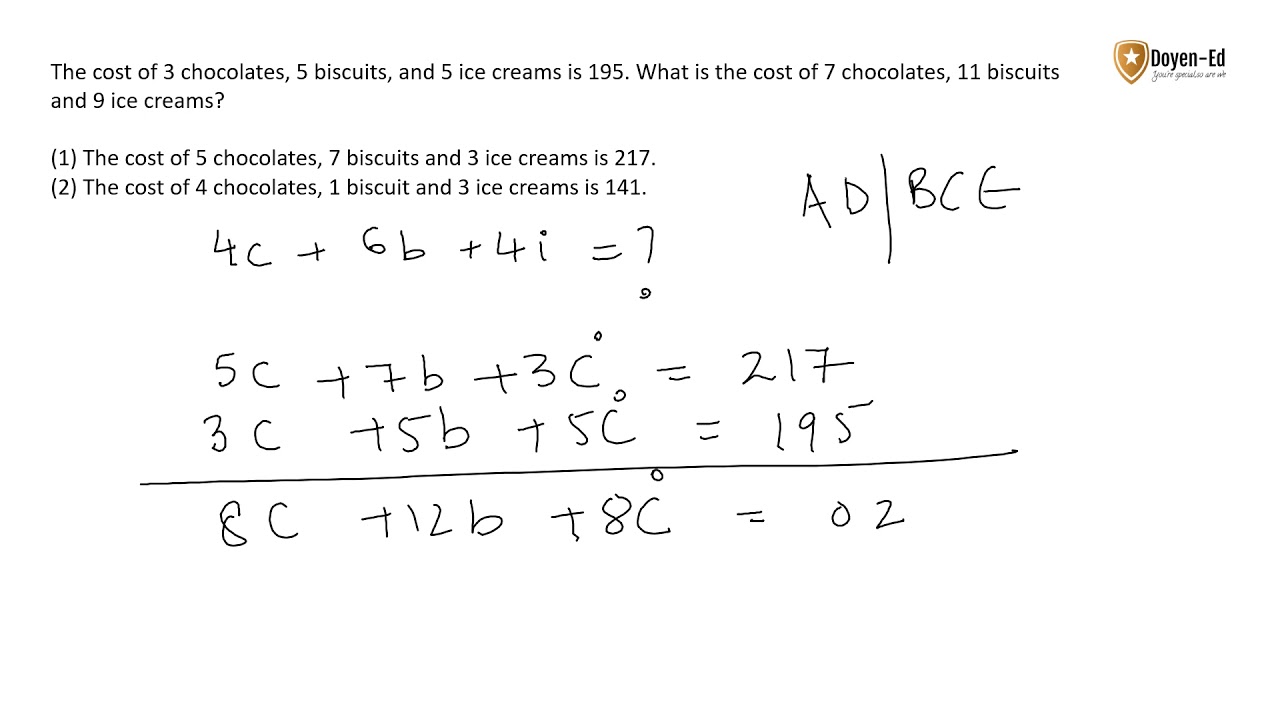 Doyen-Ed
You're special, so are we
The cost of 3 chocolates, 5 biscuits, and 5 ice creams is 195. What is the cost of 7 chocolates, 11 biscuits
and 9 ice creams?
(1) The cost of 5 chocolates, 7 biscuits and 3 ice creams is 217.
(2) The cost of 4 chocolates, 1 biscuit and 3 ice creams is 141.
AD | BCE
4c + 6b + 4i = ?
5c + 7b + 3i = 217
3c + 5b + 5i = 195
8c + 12b + 8i = 02